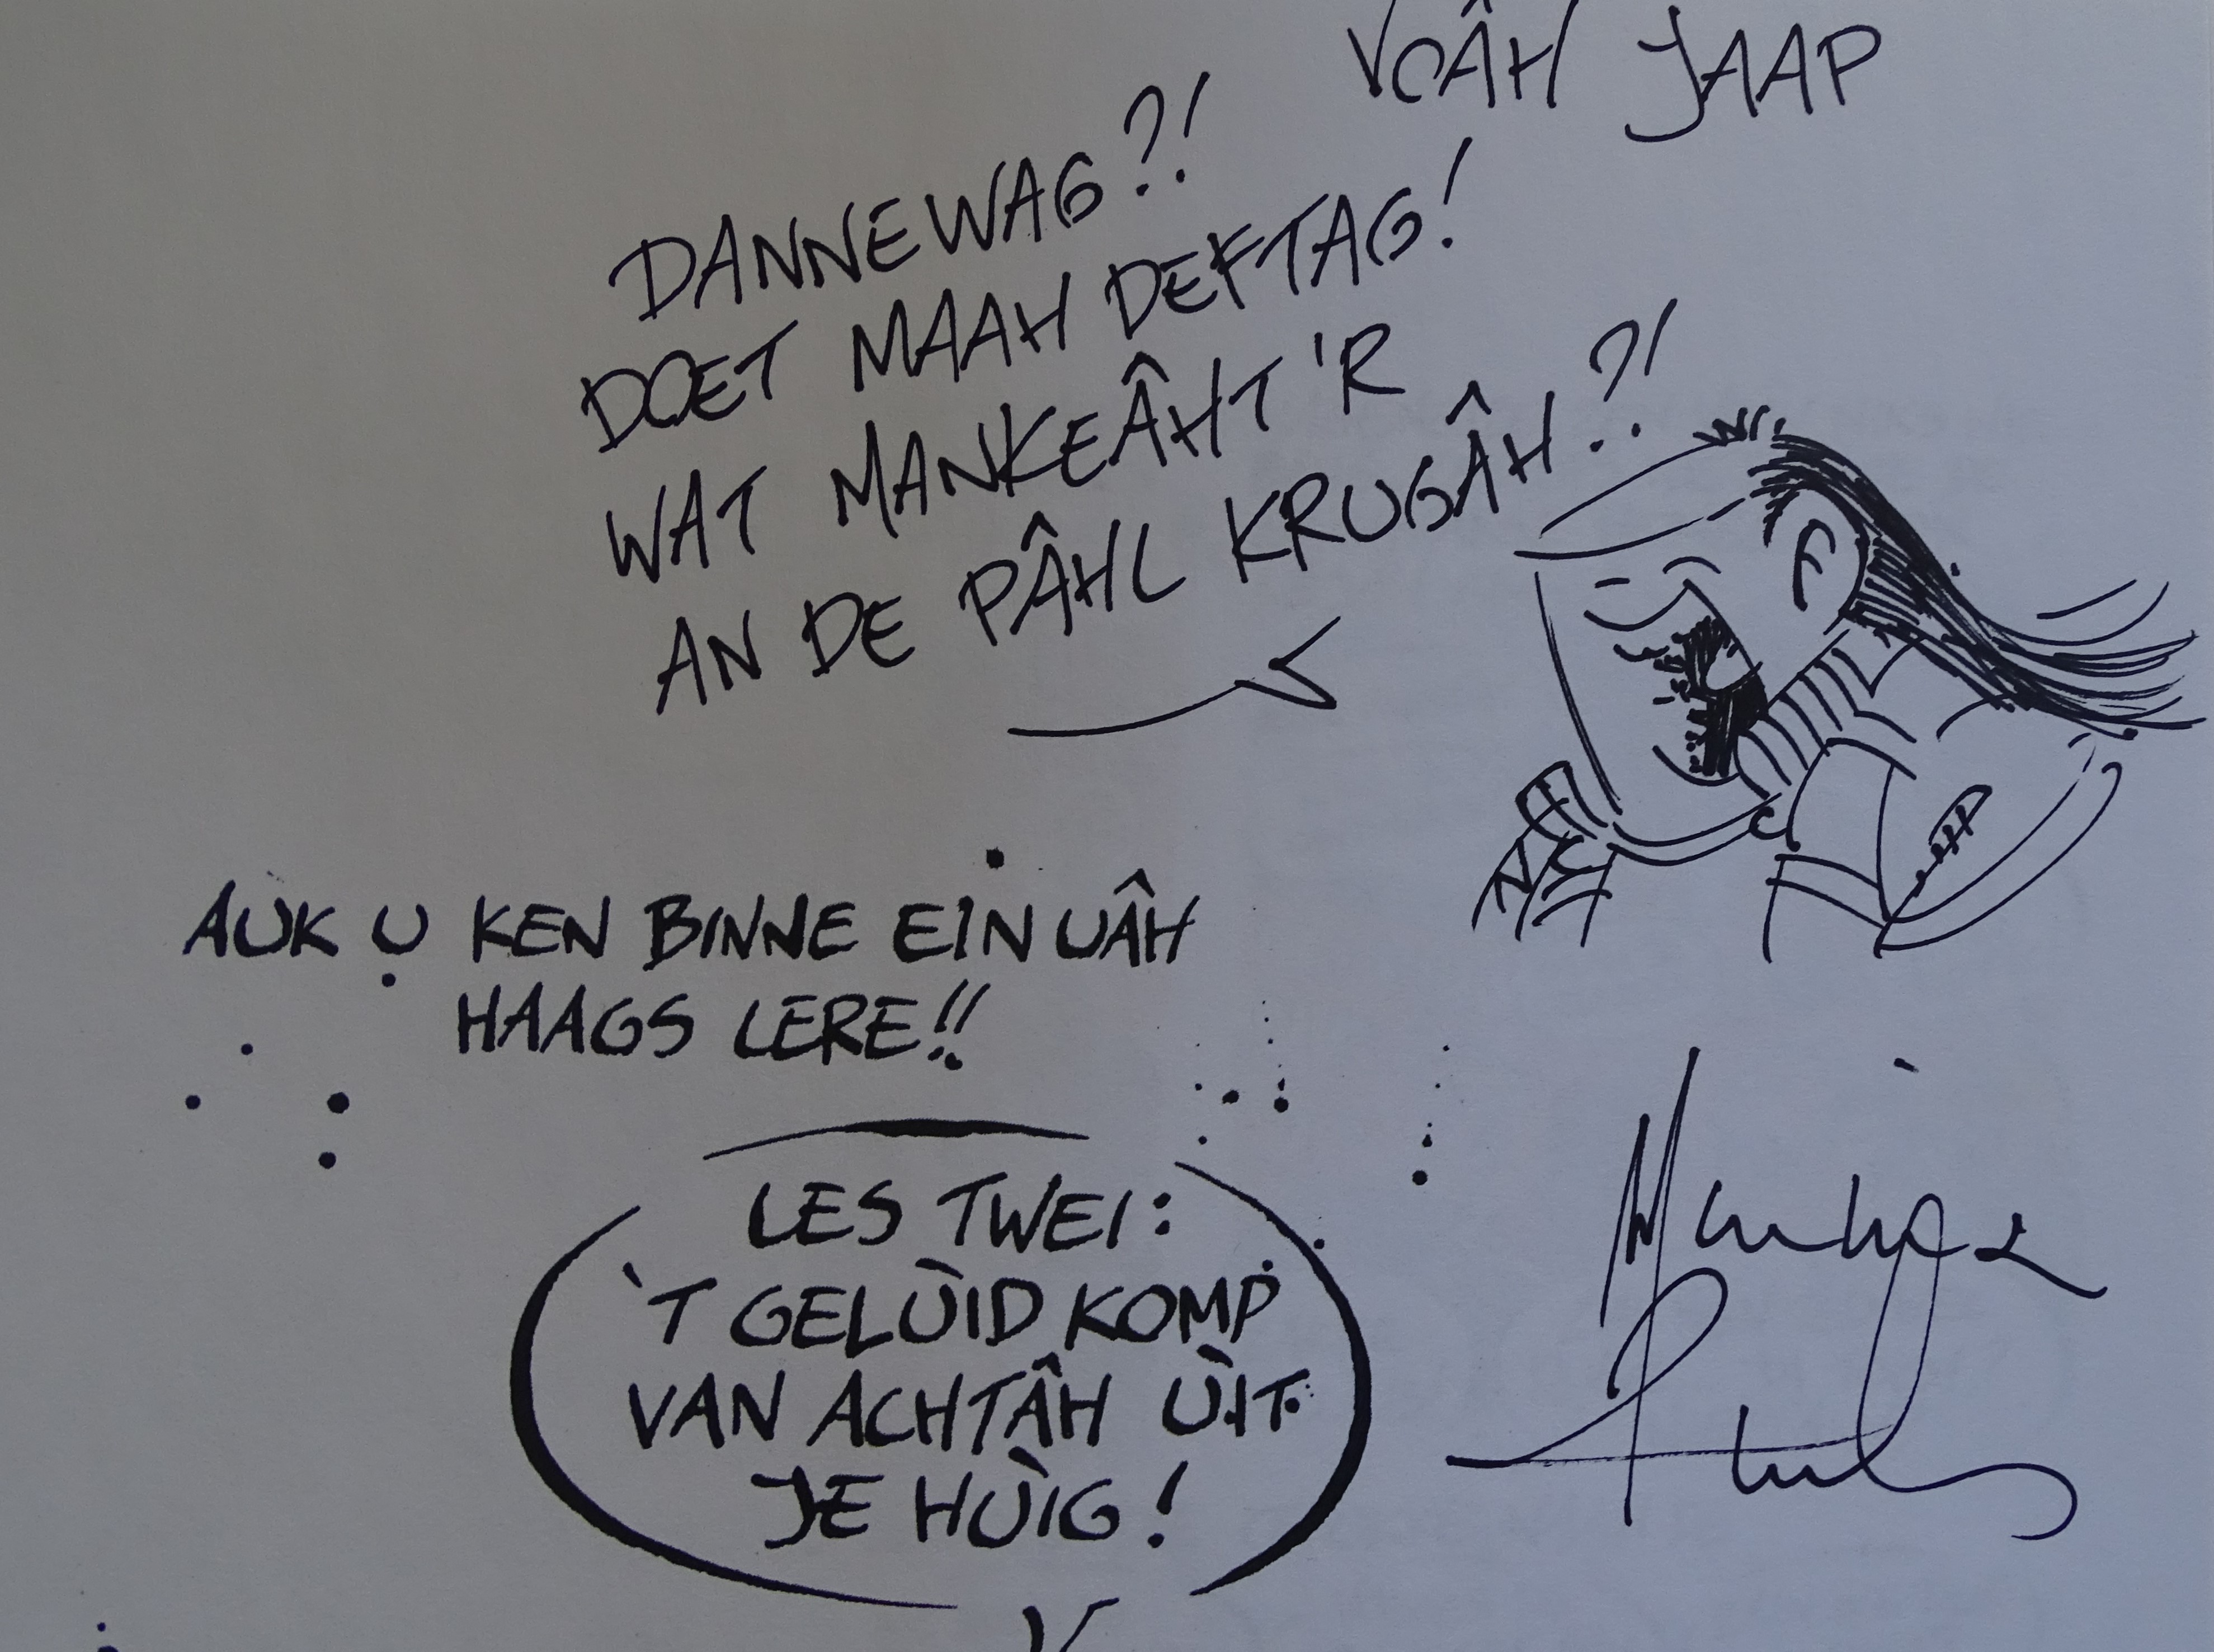 VOÂH JAAP
DANNEWAG?!
DOET MAAH DEFTAG!
WAT MANKEÂHT 'R
AN DE PÂHL KRUGÂH?!
AUK U KEN BINNE EIN UÂH
HAAGS LERE!!
LES TWEI:
'T GELÙID KOMP
VAN ACHTÂH ÙIT
JE HÙIG!